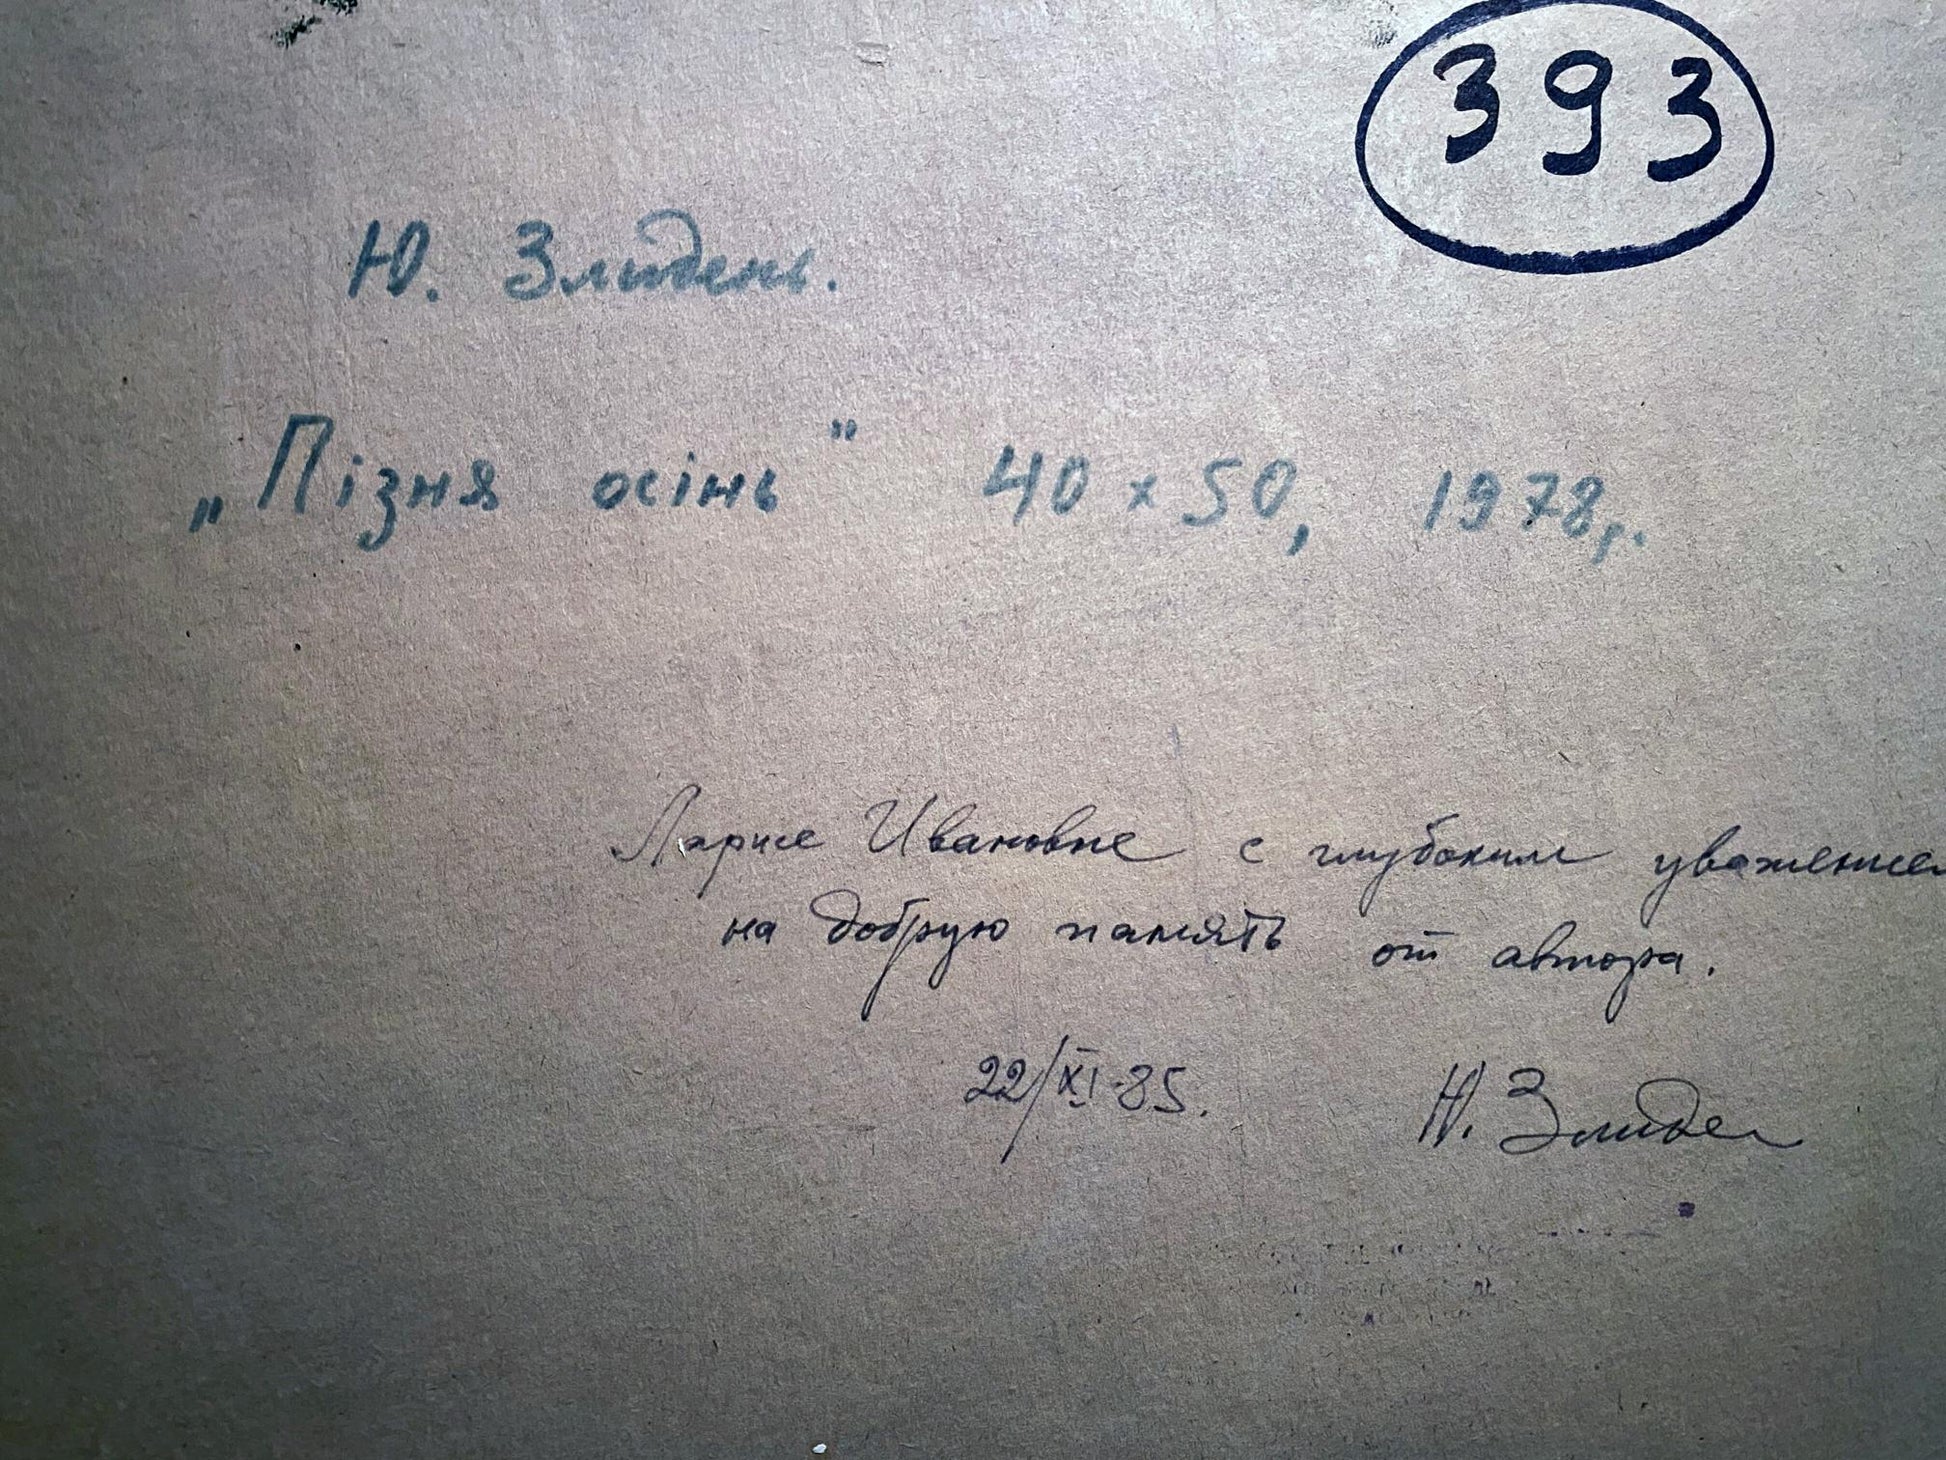 393
Ю. Злидень.
„Пізня осінь" 40 x 50, 1978,.
Ларисе Ивановне с глубоким уважением
на добрую память от автора.
22/XI-85. Ю. Злиден